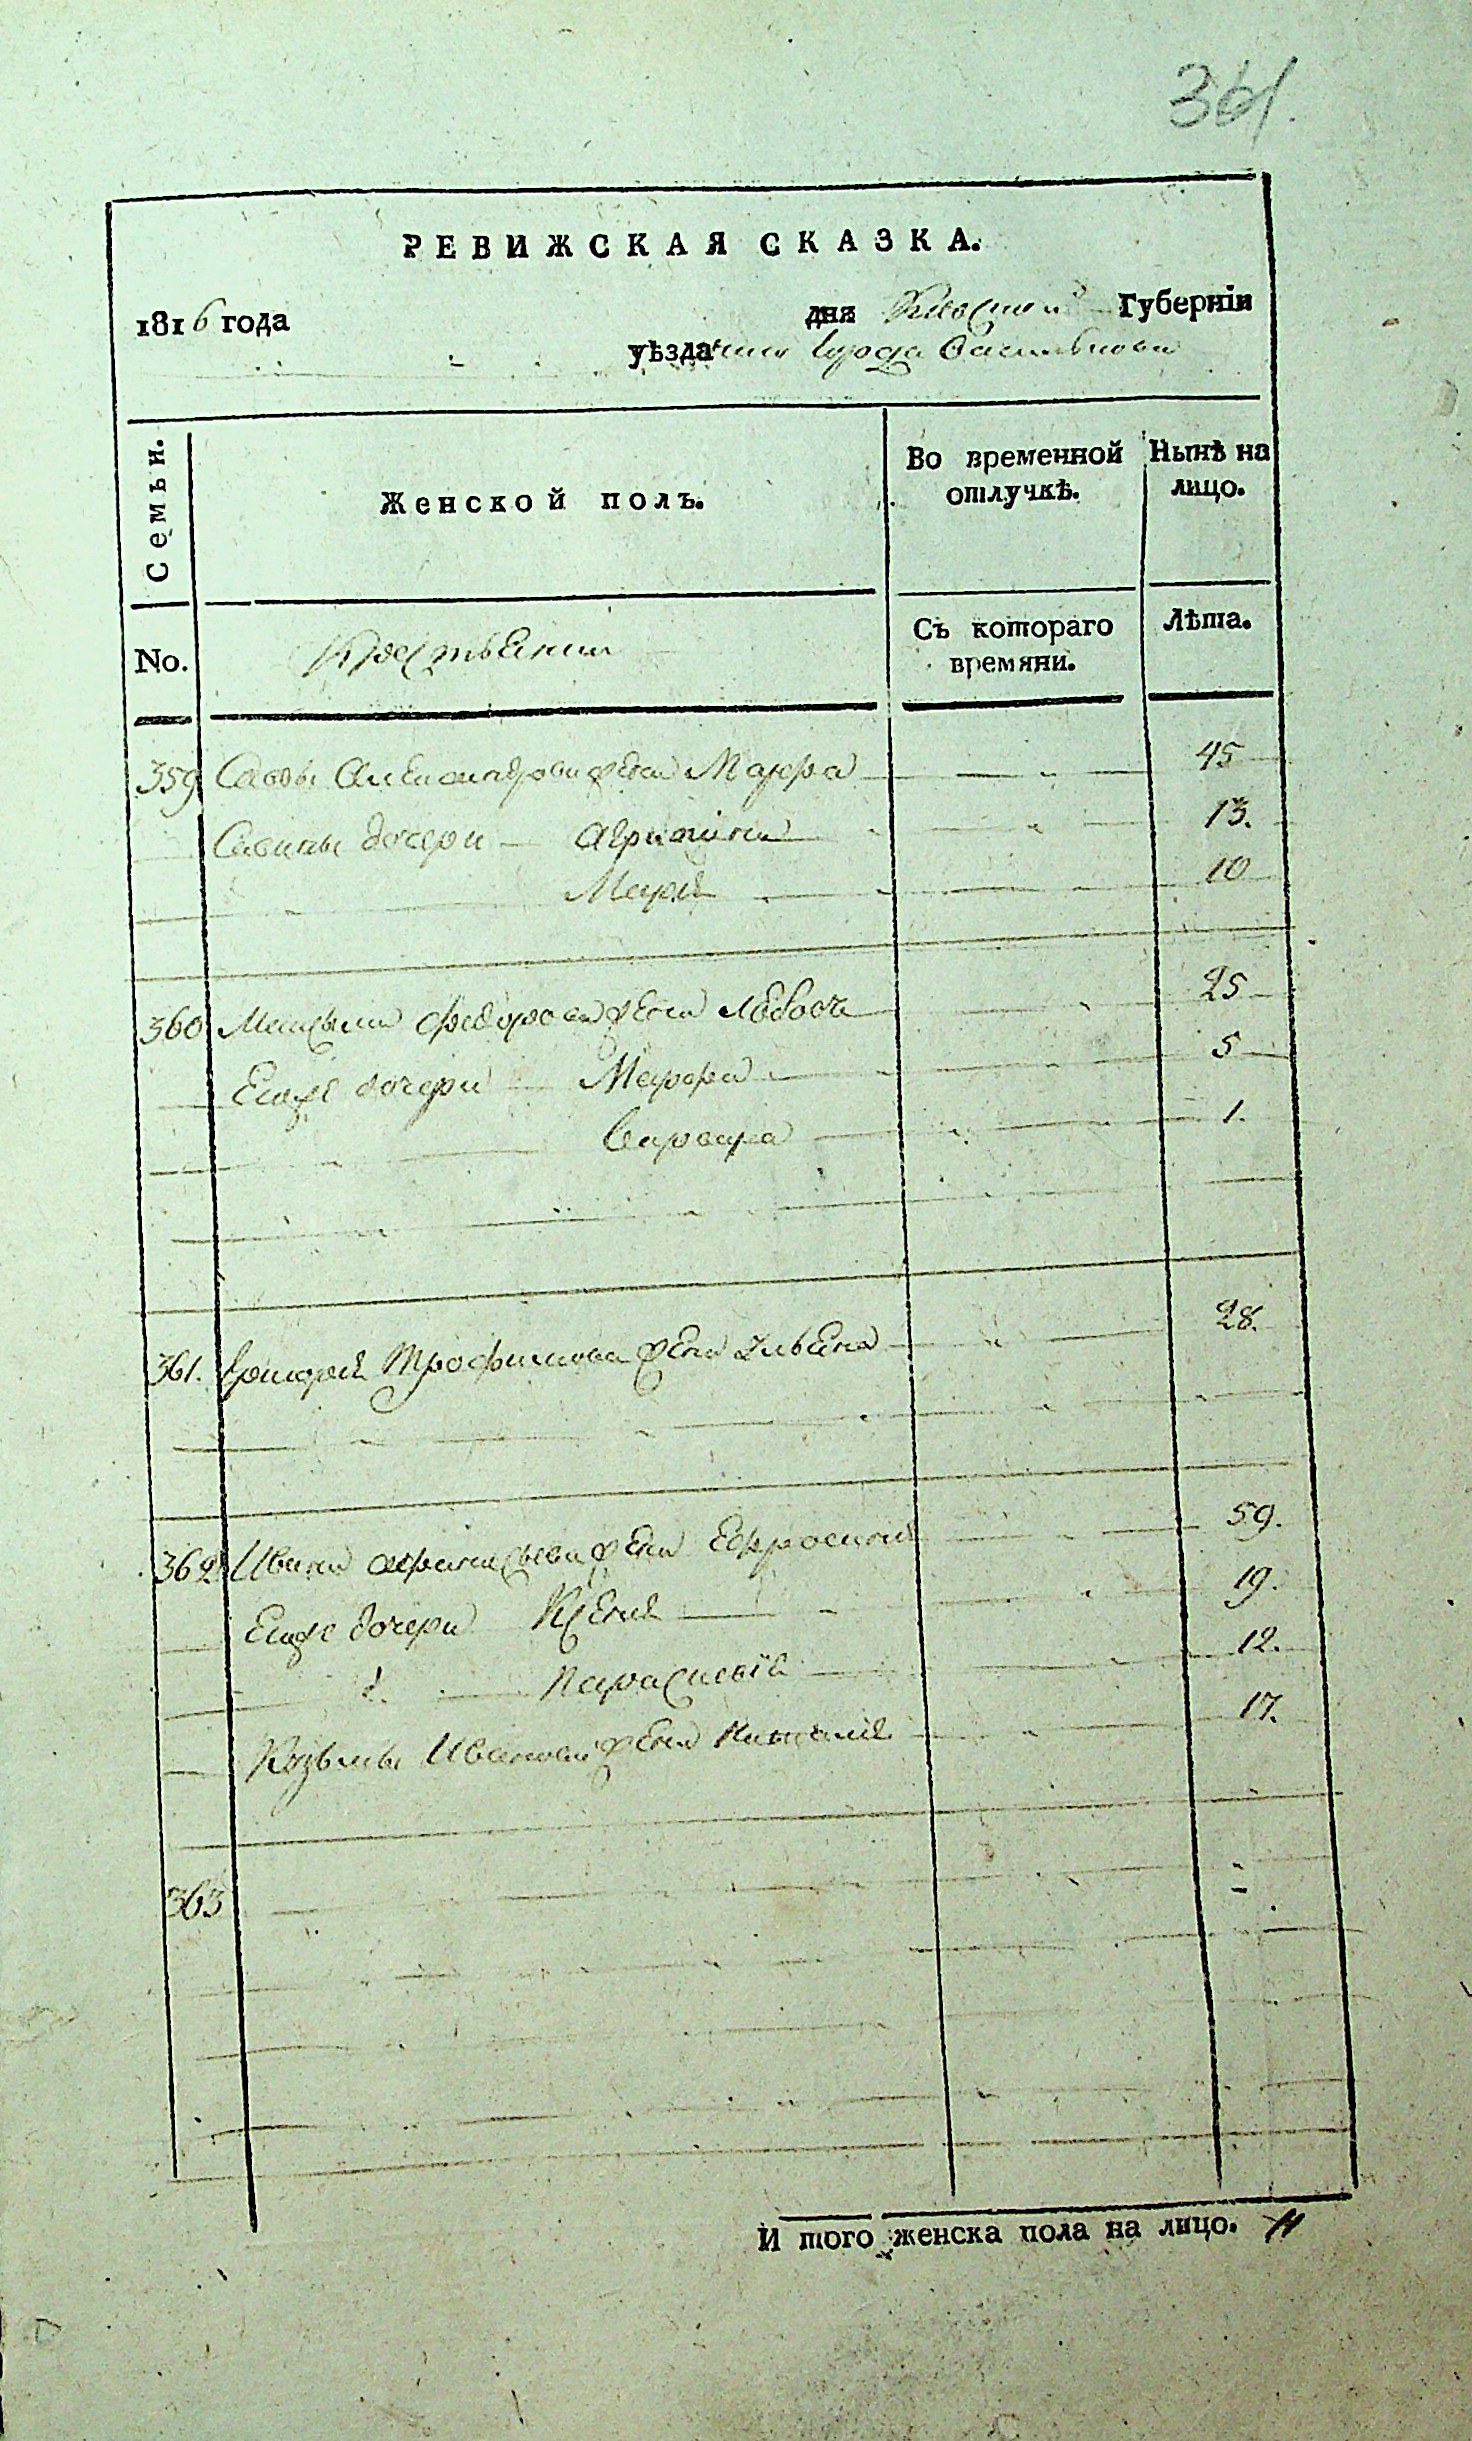 361.
РЕВИЖСКАЯ СКАЗКА.
1816 года дня Киевской Губерніи
уѣзда города Василькова
Семьи. Женской полъ. Во временной отлучкѣ. Нынѣ на лицо.
No. Крестьянки Съ котораго времяни. Лѣта.
359 Савы Александрова жена Марфа 45
Савины дочери Агрипина 13.
Марія 10
360 Федорова жена Любовь 25
Егоже дочери Марфа 5
Варвара 1.
361. Григорія Трофимова жена Ульяна 28.
362 Ивана Афанасьева жена Ефросинія 59.
Егоже дочери Ксенія 19.
2. Параскевія 12.
Кузьмы Иванова жена Наталія 17.
363
И того женска пола на лицо. 11